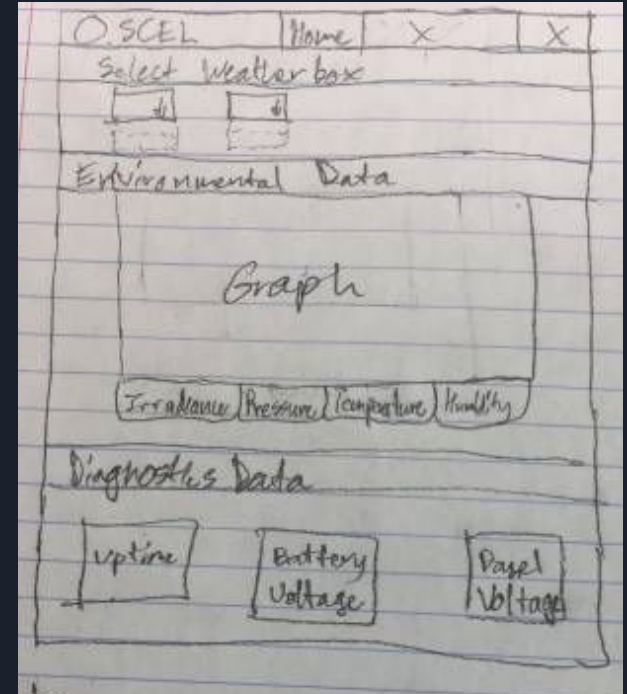 O.SCEL Home X X
Select Weatherbox
Environmental Data
Graph
Irradiance Pressure Temperature Humidity
Diagnostics Data
Uptime Battery Panel
Voltage Voltage